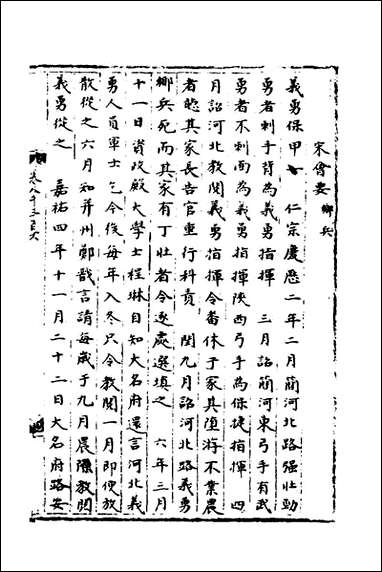 宋會要 鄉兵
義勇保甲 仁宗慶曆二年二月簡河北路强壯勁
勇者刺手背為義勇指揮 三月詔簡河東弓手有武
勇者不刺面為義勇指揮陝西弓手為保捷指揮 四
月詔河北教閱義勇指揮令番休于家其墮游不業農
者聽其家長告官重行科責 閏九月詔河北路義勇
鄉兵死而其家有丁壯者令逐處選填之 六年三月
十一日資政殿大學士程琳自知大名府還言河北義
勇人員軍士乞今後每年入冬只令教閱一月即便放
散從之六月知并州鄭戩言請每歲于九月農隙教閱
義勇從之 嘉祐四年十一月二十二日大名府路安
卷八千三百六